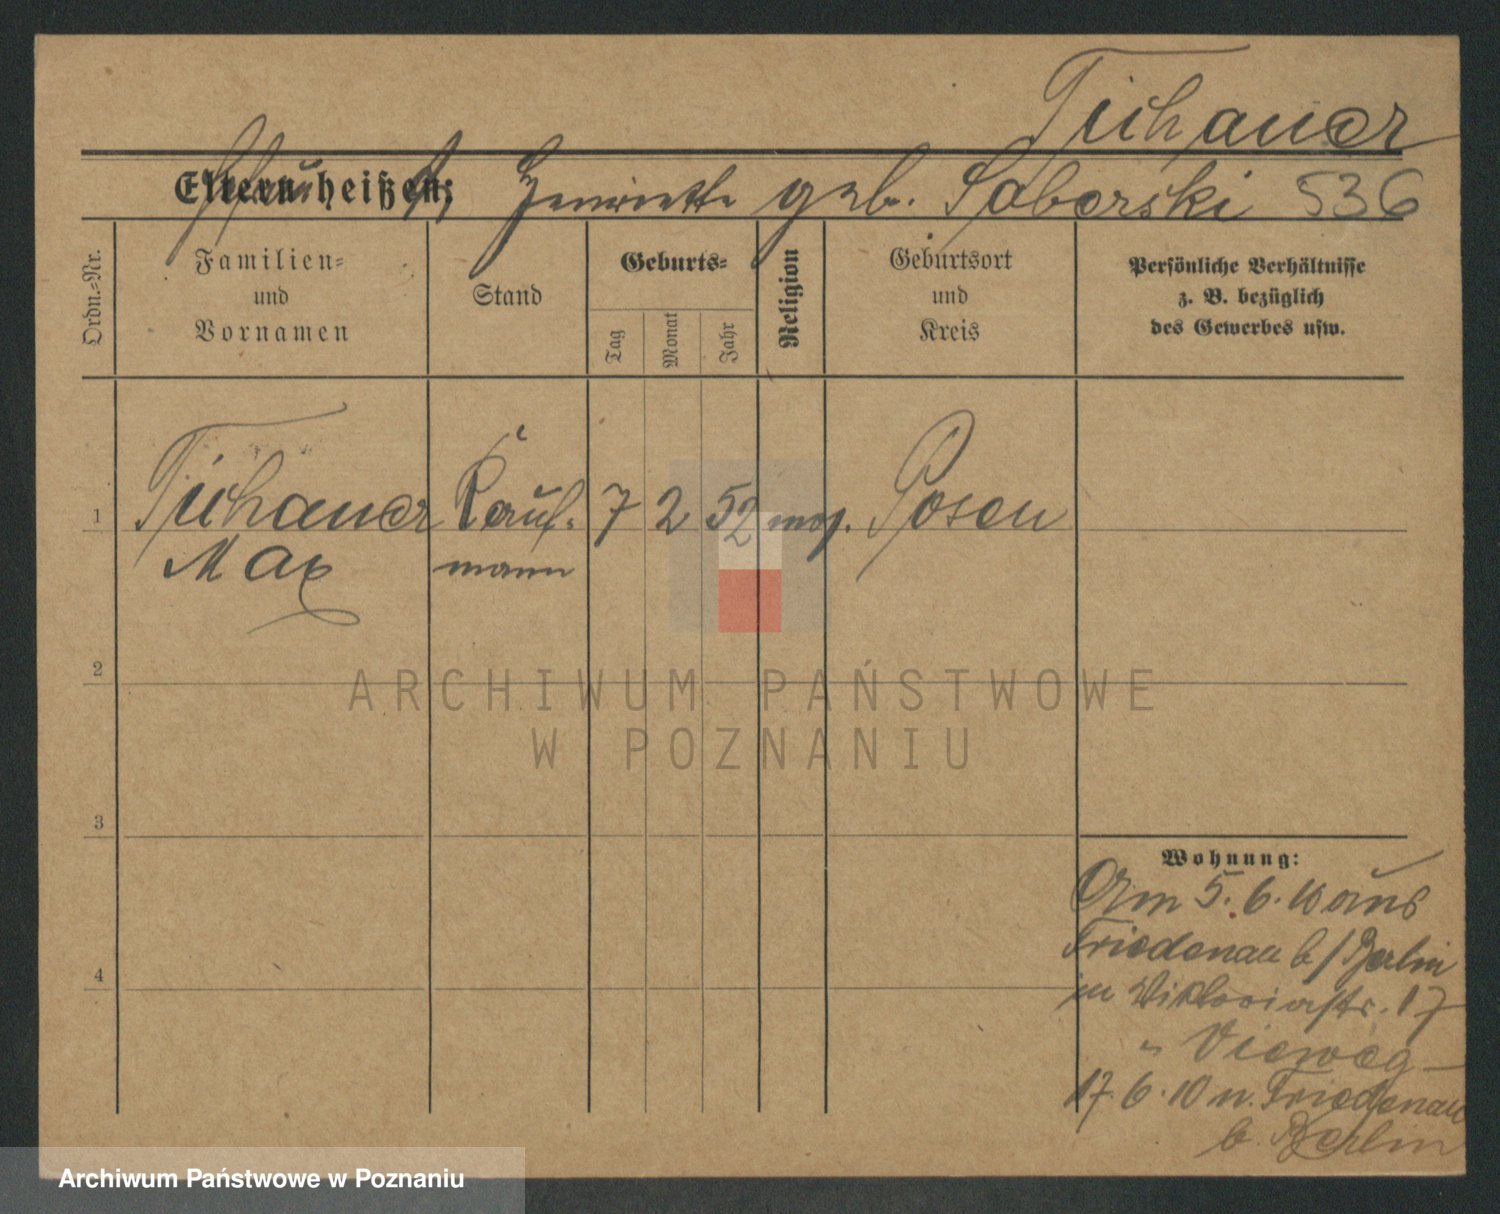 Tichauer
Eltern heißen: Henriette geb. Saborski 536
Ordn.-Nr.
Familien=
und
Vornamen
Stand
Geburts=
Tag
Monat
Jahr
Religion
Geburtsort
und
Kreis
Persönliche Verhältnisse
z. B. bezüglich
des Gewerbes usw.
1 Tichauer Kauf- 7 2 52 mos. Posen
Max mann
2
ARCHIWUM PAŃSTWOWE
W POZNANIU
3
Wohnung:
Am 5. 6. 10 aus
Friedenau b/Berlin
in Viktoriastr. 17
" Vieweg
4
17. 6. 10 n. Friedenau
b. Berlin
Archiwum Państwowe w Poznaniu